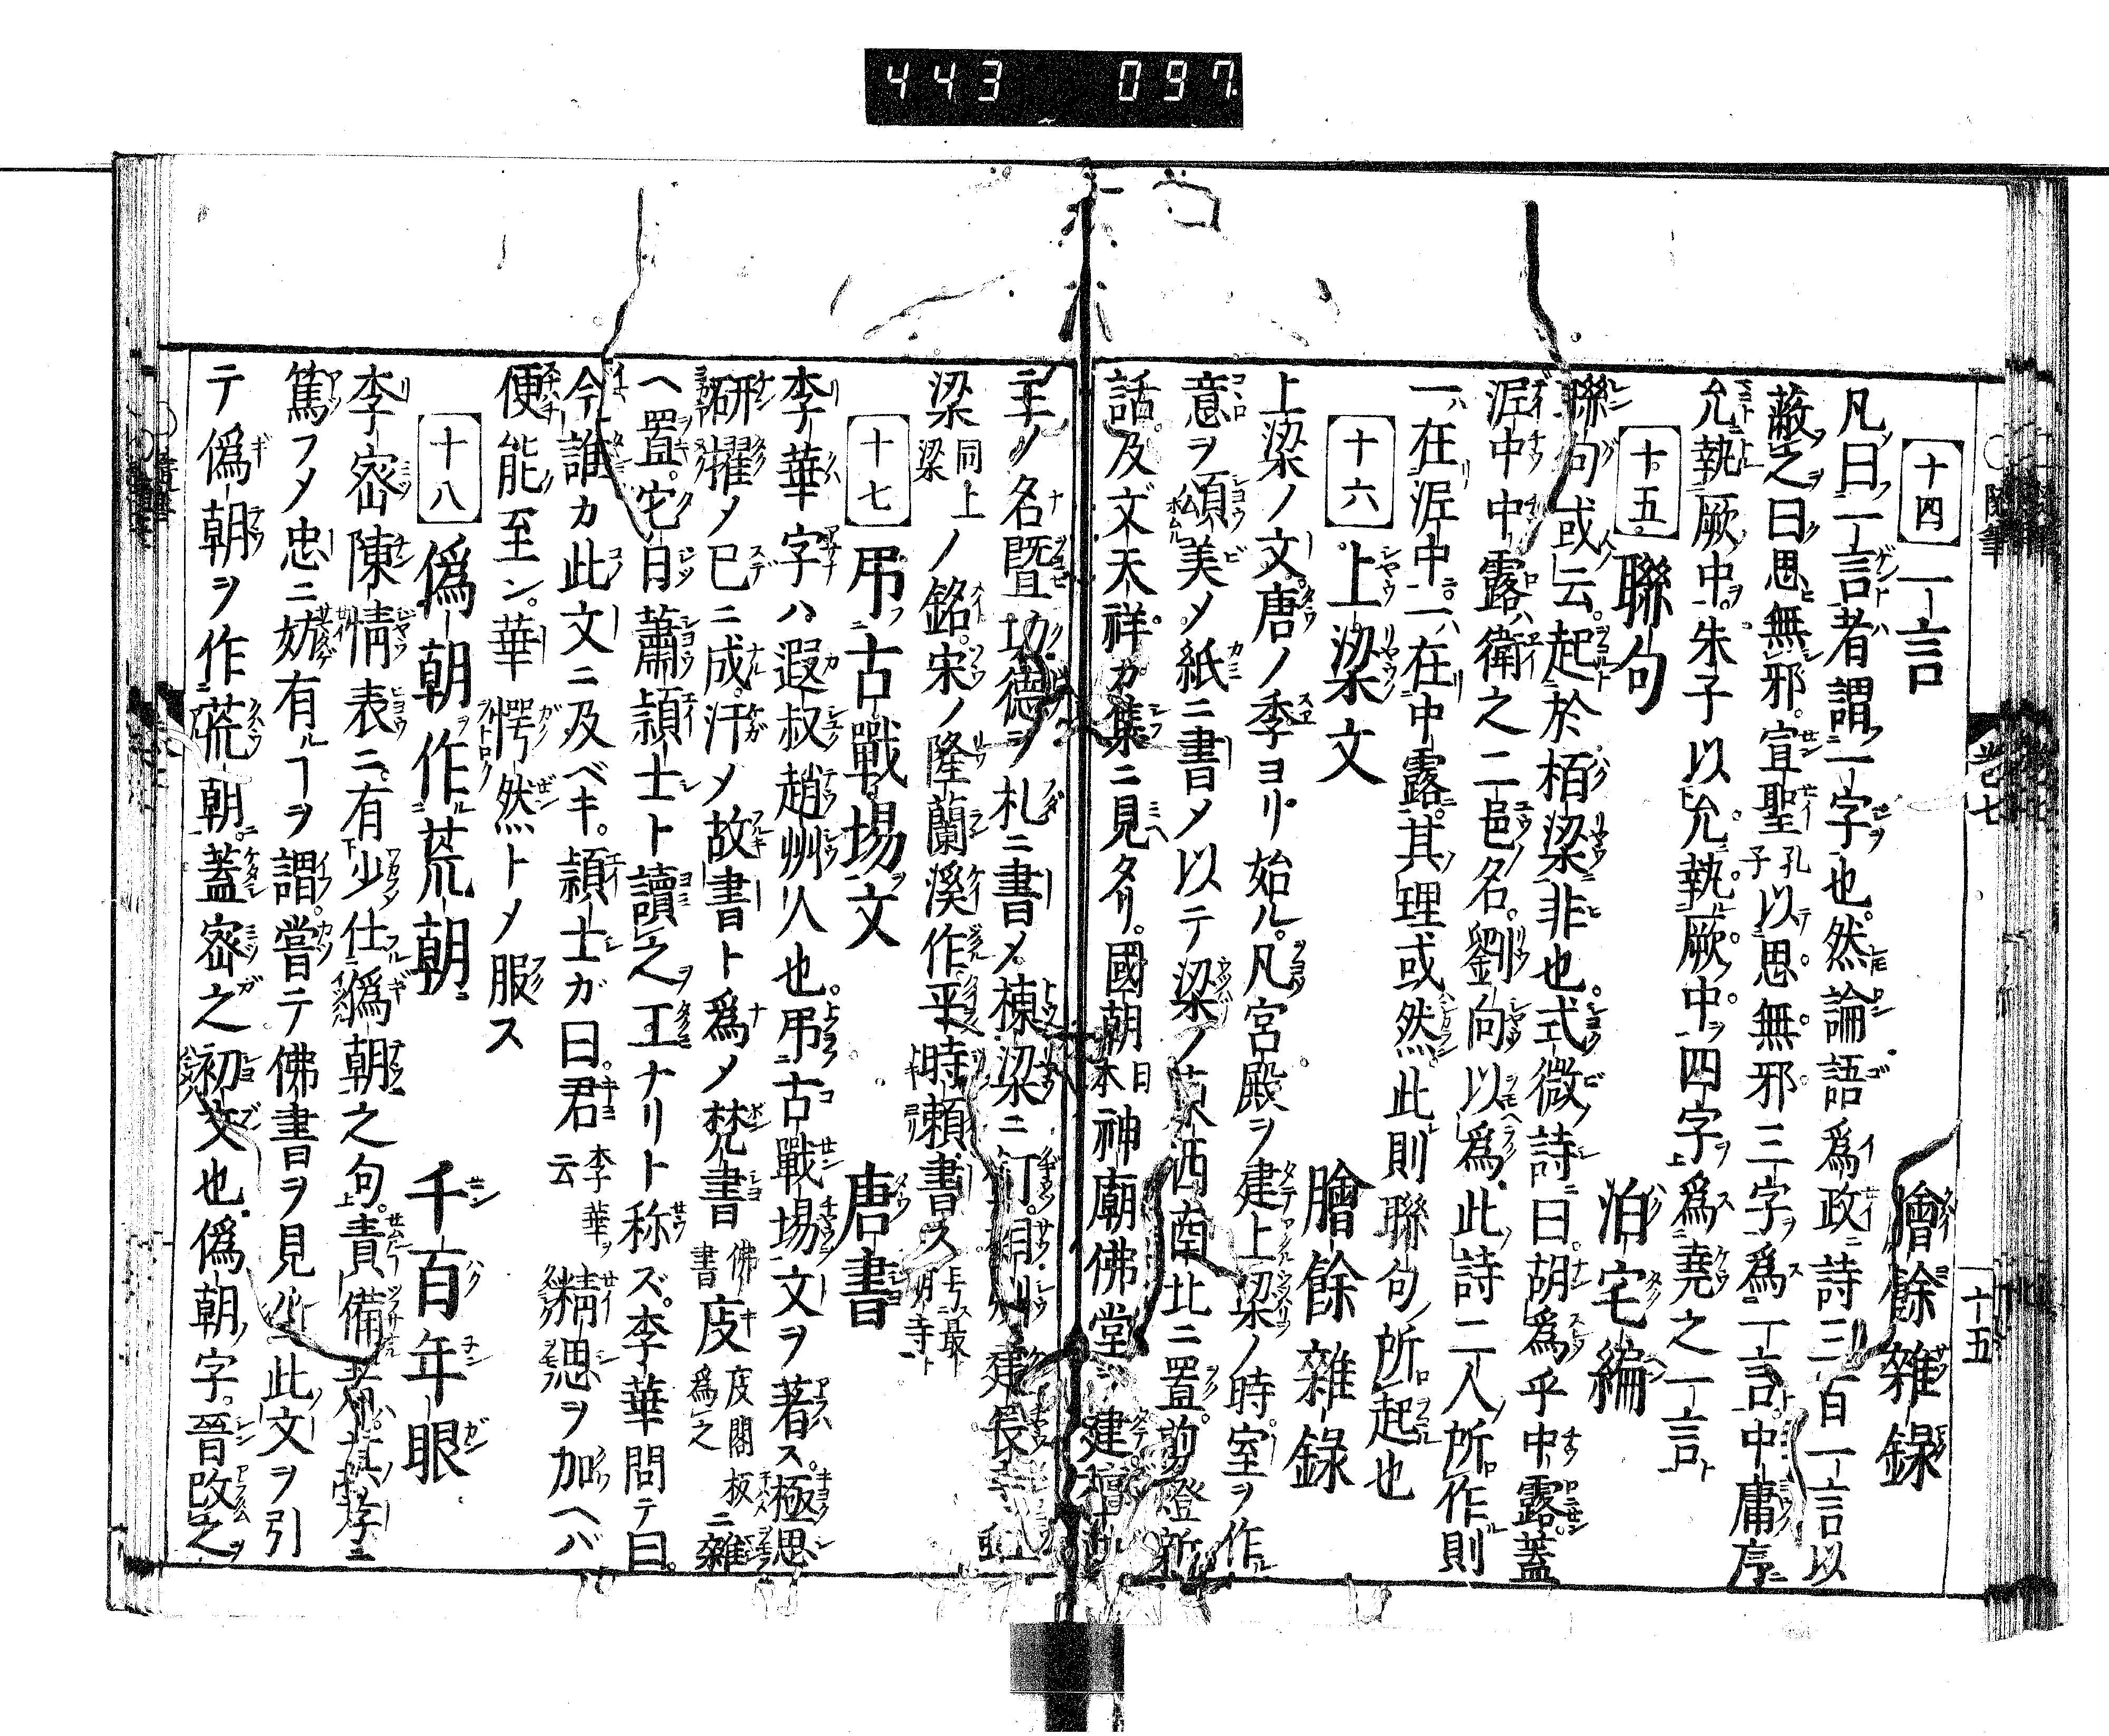 443 097
十四 一言 膾餘雜録
凡曰一言者謂一字也。然論語爲政詩三百一言以
蔽之曰思無邪。宣聖孔子以思無邪三字爲一言。中庸序
允執厥中。朱子以允執厥中四字爲堯之一言
十五 聯句 泊宅編
聯句或云。起於栢梁非也。式微詩曰。胡爲乎中露。蓋
泥中中露衛之二邑名。劉向以爲此詩二人所作則
一在泥中。一在中露。其理或然。此則聯句所起也
十六 上梁文 膾餘雜錄
上梁ノ文。唐ノ季ヨリ始ル。凡宮殿ヲ建上梁ノ時。室ヲ作ル
意ヲ頌美メ紙ニ書メ以テ梁ノ東西南北ニ置。剪燈新
話及ヾ文天祥ガ集ニ見ヘタリ。國朝日本神廟佛堂ヲ建
主ノ名曁功德ヲ札ニ書メ。棟梁ニ釘。相州建長
梁同上梁ノ銘。宋ノ隆蘭溪作。平時頼書ス号ス最明寺ト
十七 吊古戰塲文 唐書
李華字ハ遐叔趙州人也。吊古戰塲文ヲ著ス。極思
研搉メ已ニ成。汗メ故書ト爲メ梵書佛書庋庋閣爲之板ニ雜
ヘ置。宅日蕭頴士ト讀之工ナリト称ズ。李華問テ曰。
今誰カ此文ニ及ベキ。頴士ガ曰。君李華ヲ云精思ヲ加ヘバ
便能至ン。華愕然トメ服ス
十八 僞朝作荒朝 千百年眼
李宻陳情表ニ。有少仕僞朝之句。責備者ハ其孝ニ
篤フメ忠ニ妨有ルヿヲ謂。嘗テ佛書ヲ見ルニ此文ヲ引
テ僞朝ヲ作荒朝。蓋宻之初文也。僞朝ノ字。晉改之
隨筆 卷七 十五